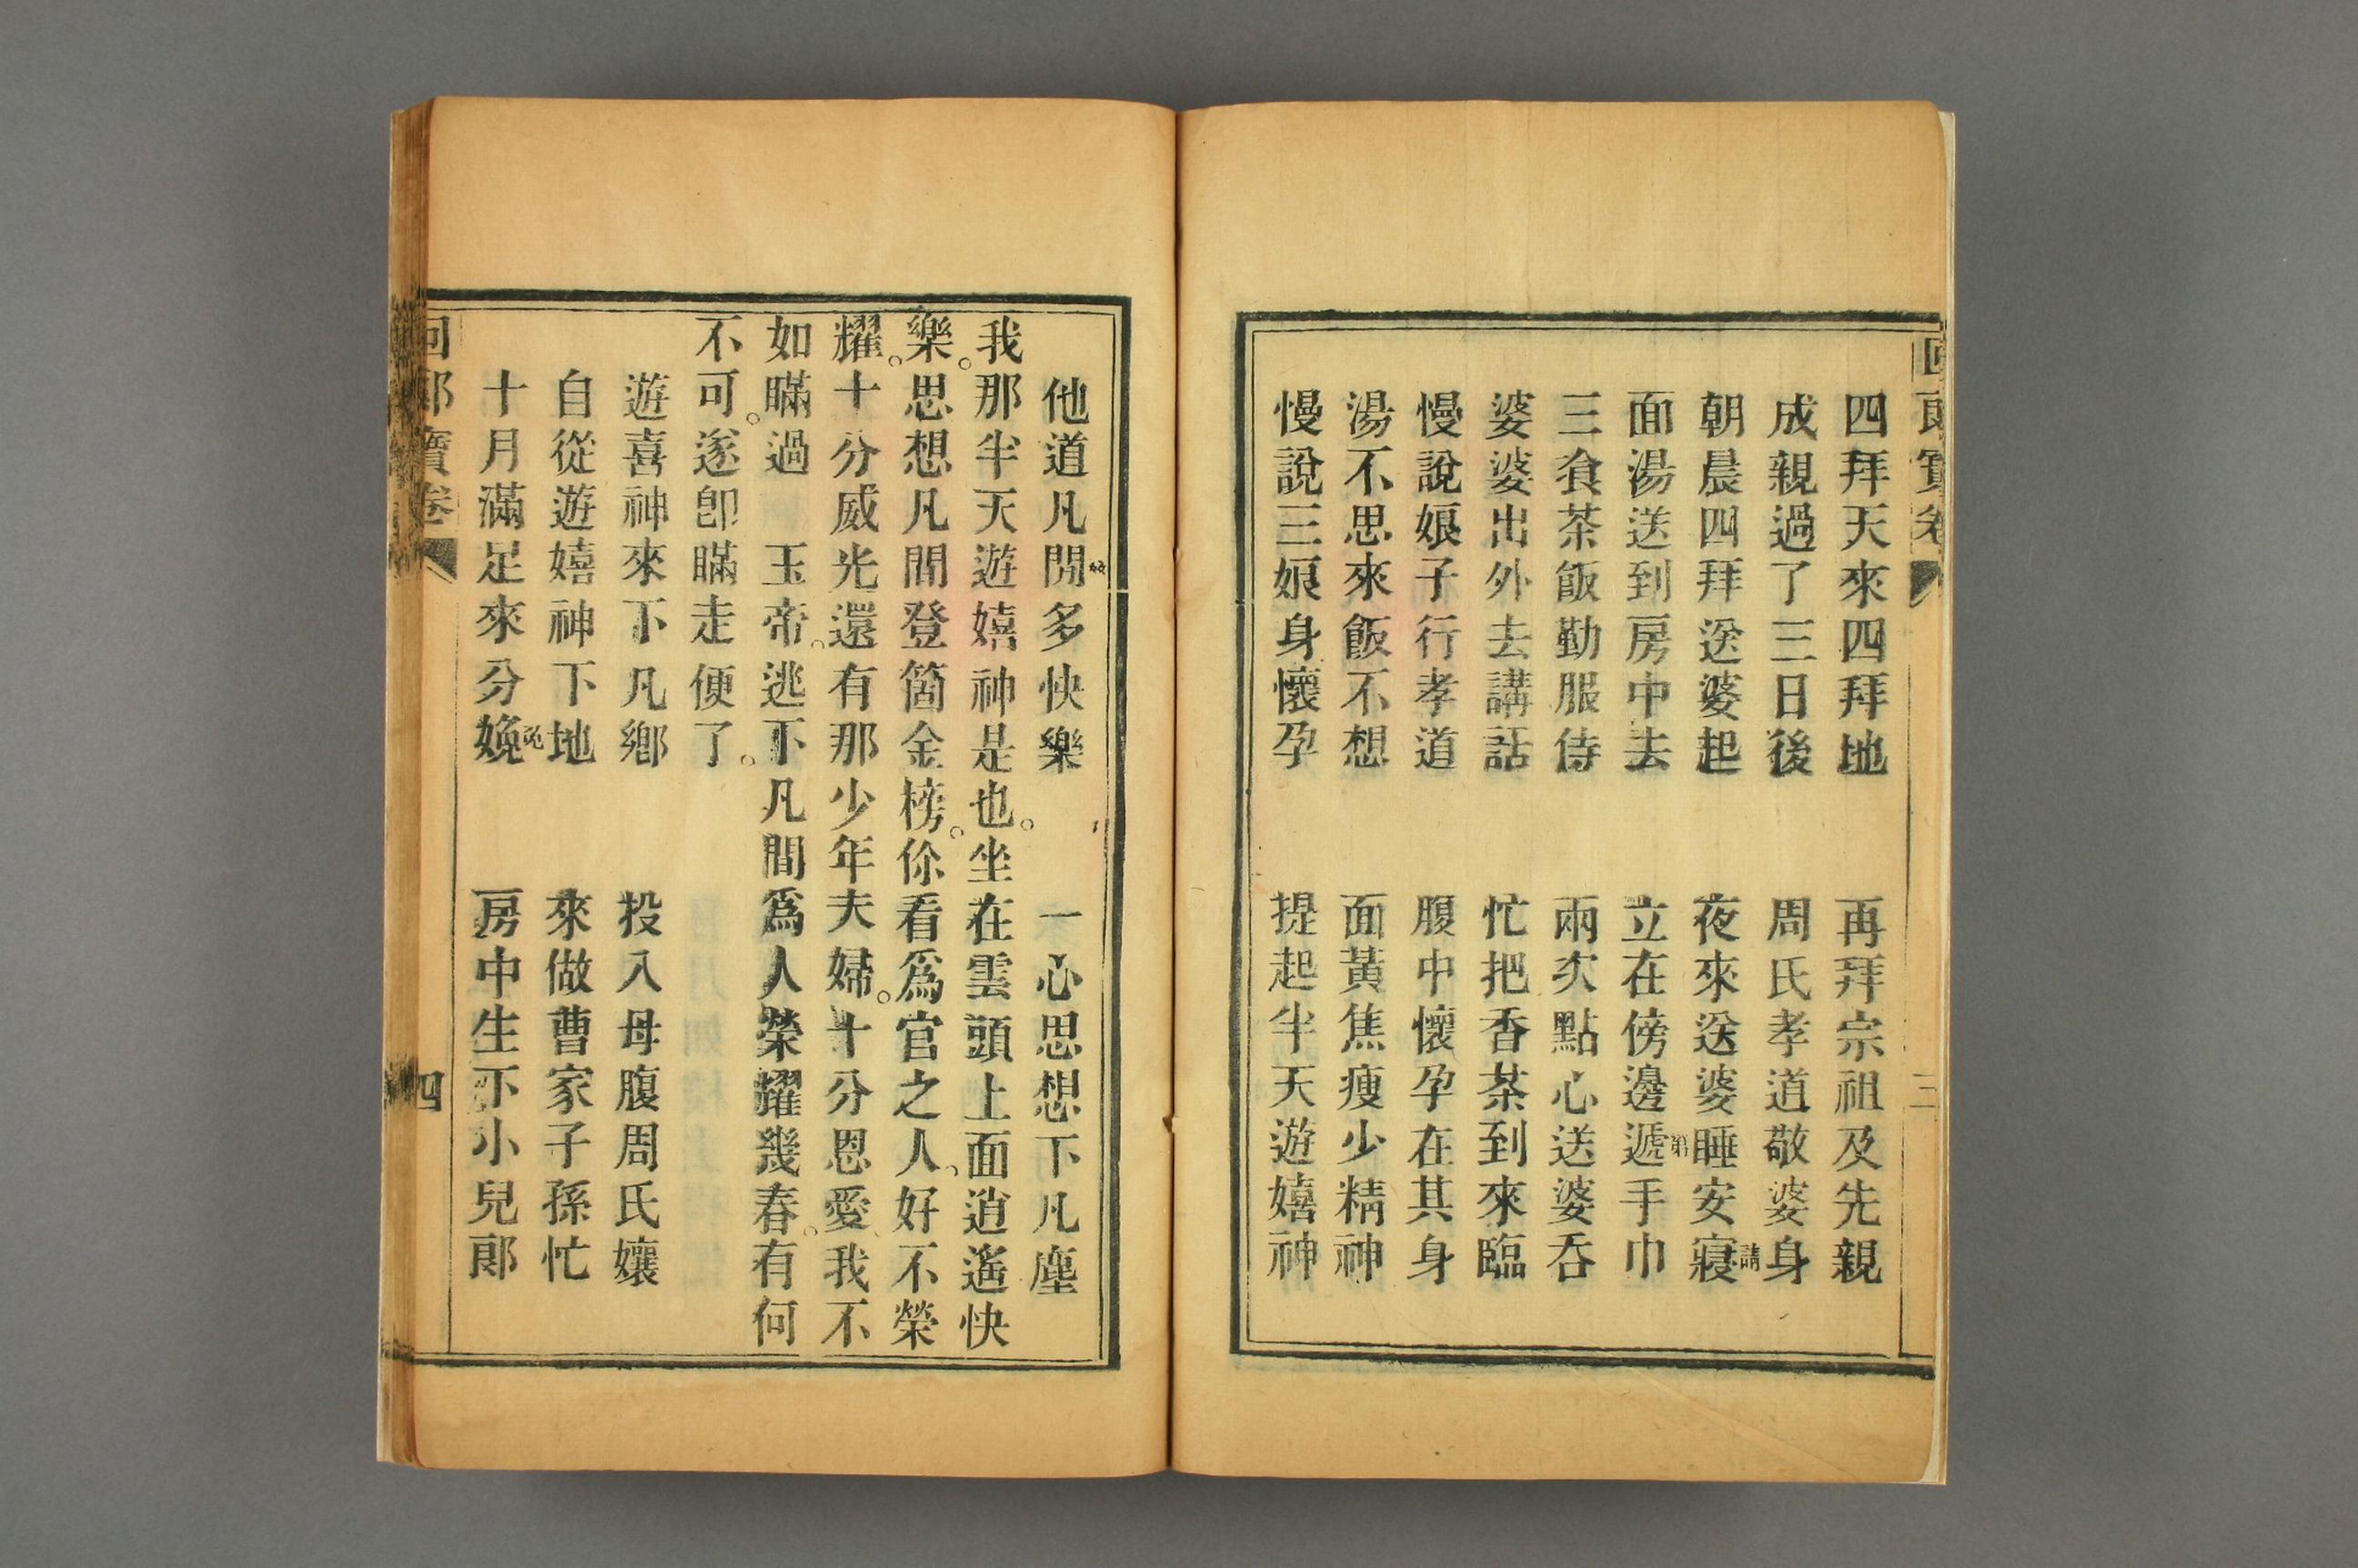 回郎寶卷
三
四拜天來四拜地　再拜宗祖及先親
成親過了三日後　周氏孝道敬婆身
朝晨四拜送婆起　夜來送婆睡安寢請
面湯送到房中去　立在傍邊遞第手巾
三飡茶飯勤服侍　兩次點心送婆吞
婆婆出外去講話　忙把香茶到來臨
慢說娘子行孝道　腹中懷孕在其身
湯不思來飯不想　面黃焦瘦少精神
慢說三娘身懷孕　提起半天遊嬉神
他道凡間多快樂　一心思想下凡塵
我那半天遊嬉神是也。坐在雲頭上面逍遙快
樂。思想凡間登箇金榜。你看爲官之人。好不榮
耀。十分威光還有那少年夫婦。十分恩愛。我不
如瞞過　玉帝。逃下凡間爲人榮耀幾春。有何
不可。遂卽瞞走便了。
遊喜神來下凡鄉　投入母腹周氏孃
自從遊嬉神下地　來做曹家子孫忙
十月滿足來分娩免　房中生下小兒郎
回郎寶卷
四